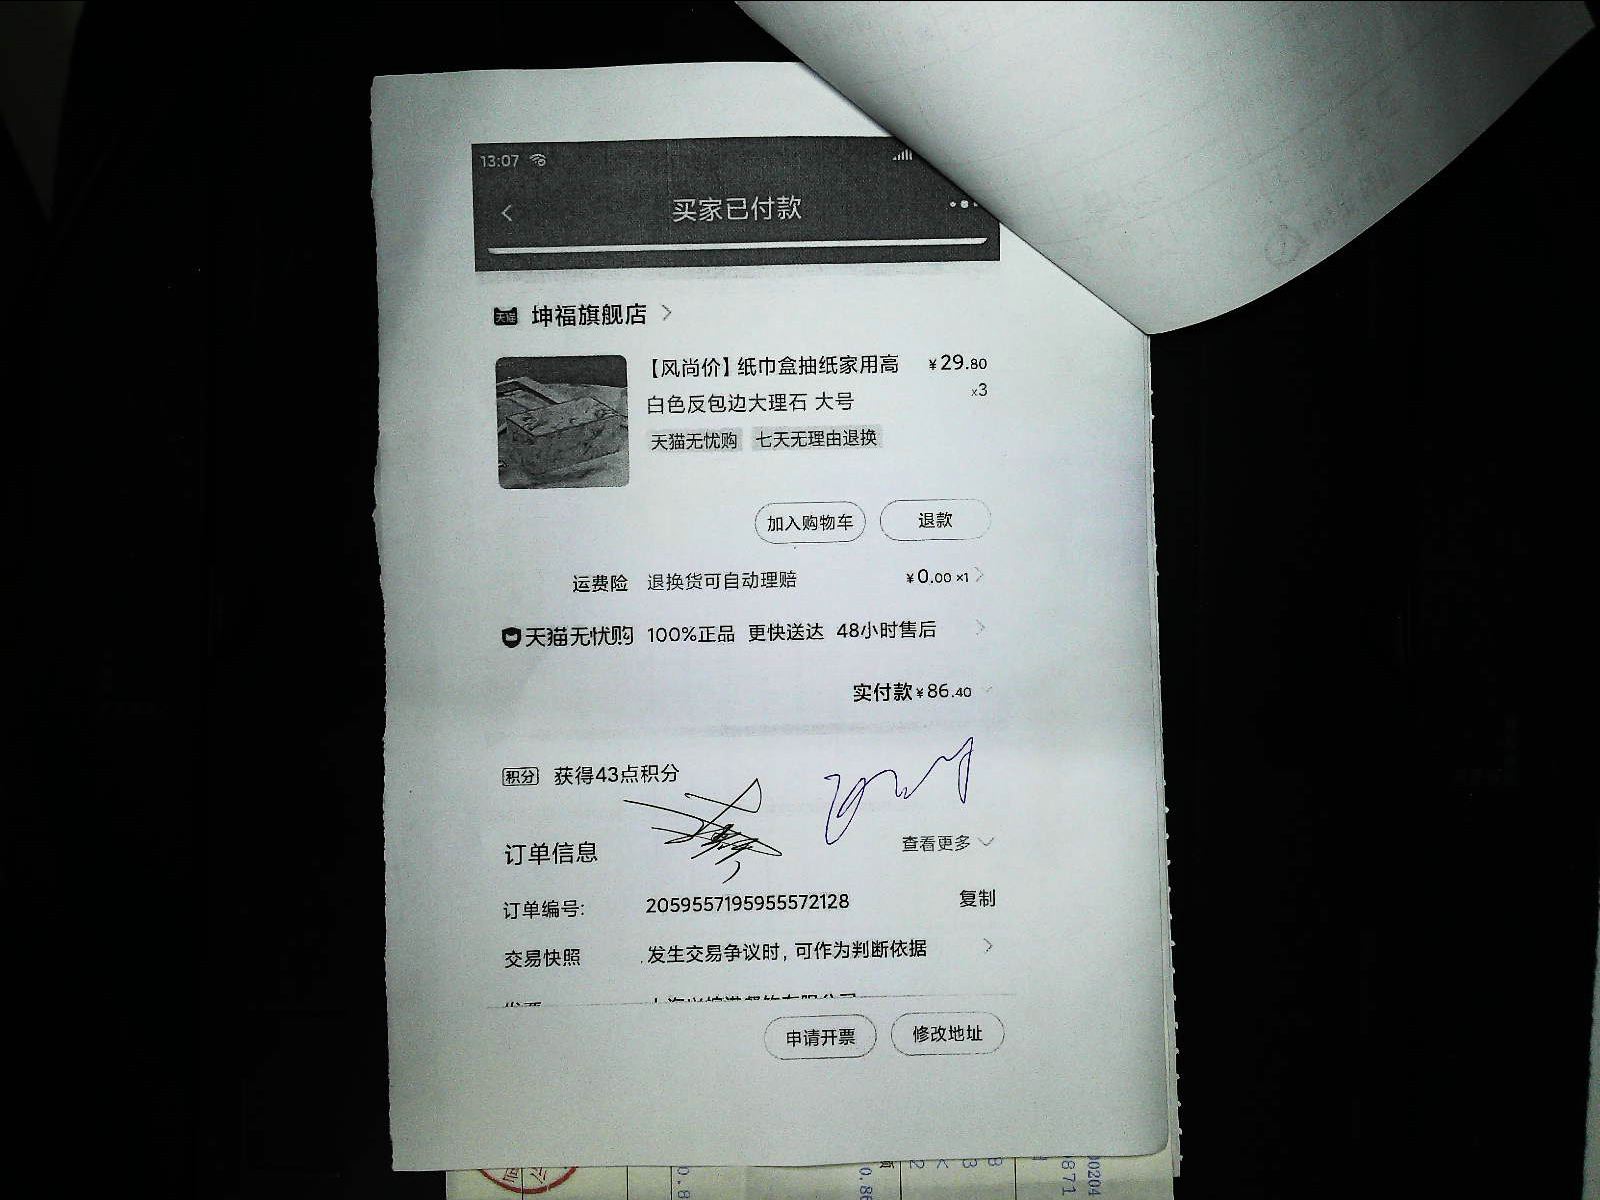 13:07
买家已付款
天猫 坤福旗舰店
【风尚价】纸巾盒抽纸家用高 ¥29.80
白色反包边大理石 大号 x3
天猫无忧购 七天无理由退换
加入购物车 退款
运费险 退换货可自动理赔 ¥0.00 x1
天猫无忧购 100%正品 更快送达 48小时售后
实付款¥86.40
积分 获得43点积分
订单信息 查看更多
订单编号: 2059557195955572128 复制
交易快照 发生交易争议时,可作为判断依据
申请开票 修改地址